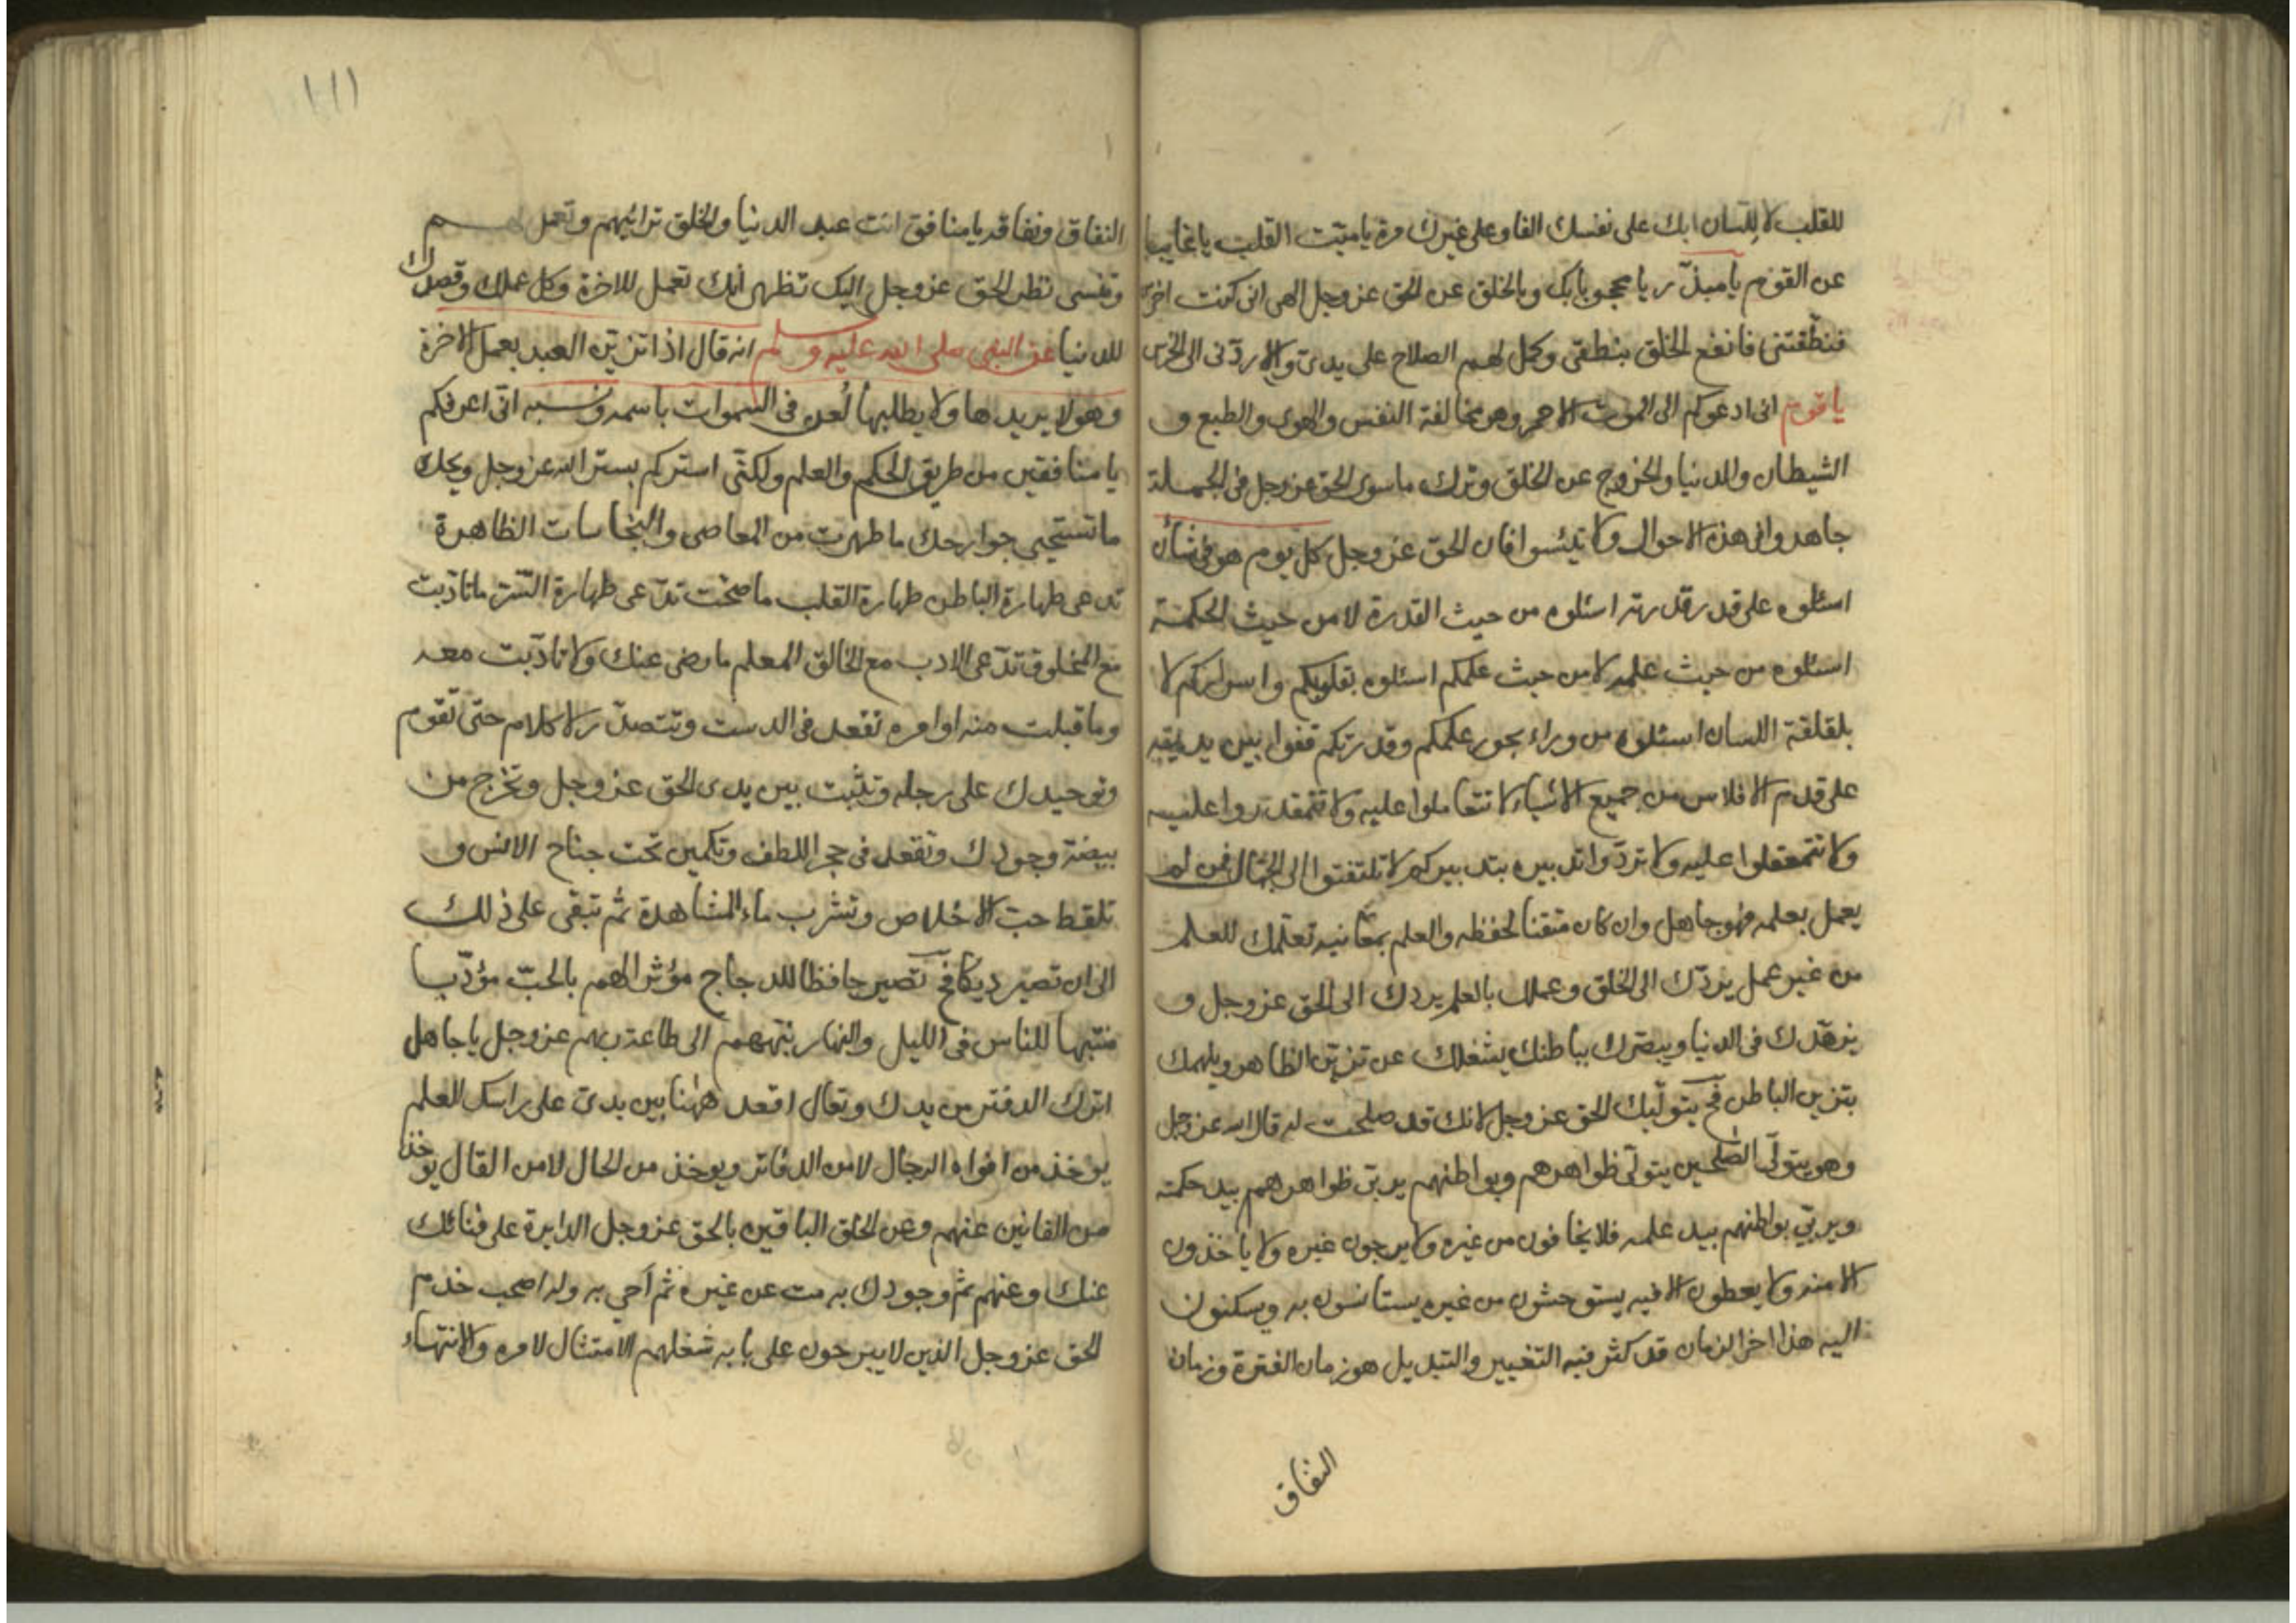 للقلب لا للسان ابك على نفسك الفا وعلى غيرك مرة يا ميّت القلب يا غايبا
عن القوم يا مبذّر يا محجوبا بك وبالخلق عن الحق عز وجل الهى انى كنت اخرس
فنطّقتنى فانفع الخلق بنطقى وكمل لهم الصلاح على يدىّ والا ردّنى الى الخرس
يا قوم انى ادعوكم الى الموت الاحمر وهو مخالفة النفس والهوى والطبع و
الشيطان والدنيا والخروج عن الخلق وترك ما سوى الحق عز وجل فى الجملة
جاهدوا فى هذه الاحوال ولا تيئسوا فان الحق عز وجل كل يوم هو فى شأن
اسئلوه على قدر قدرته اسئلوه من حيث القدرة لا من حيث الحكمة
اسئلوه من حيث علمه لا من حيث علمكم اسئلوه بقلوبكم واسراركم لا
بلقلقة اللسان اسئلوه من وراء بحور علمكم وقدرتكم قفوا بين يديه
على قدم الافلاس من جميع الاشياء لا تتعاملوا عليه ولا تتمقدروا عليه
ولا تتمعقلوا عليه ولا تردّوا تدبيره بتدبيركم لا تلتفتوا الى الجهال فمن لم
يعمل بعلمه فهو جاهل وان كان متقنا لحفظه والعلم بمعانيه تعلمك للعلم
من غير عمل يردّك الى الخلق وعملك بالعلم يردك الى الحق عز وجل و
يزهّدك فى الدنيا ويبصّرك بباطنك يشغلك عن تزيّن الظاهر ويلهمك
بتزين الباطن فح يتولّيك الحق عز وجل لانك قد صلحت له قال الله عز وجل
وهو يتولّى الصلحين يتولّى ظواهرهم وبواطنهم يربّى ظواهرهم بيد حكمته
ويربّى بواطنهم بيد علمه فلا يخافون من غيره ولا يرجون غيره ولا ياخذون
الا منه ولا يعطون الا فيه يستوحشون من غيره يستانسون به ويسكنون
اليه هذا اخر الزمان قد كثر فيه التغيير والتبديل هو زمان الفترة وزمان
النفاق
النفاق ونفاقه يا منافق انت عبد الدنيا والخلق ترائيهم وتعمل لهم
وتنسى نظر الحق عز وجل اليك تظهر أنك تعمل للاخرة وكل عملك وقصدك
للدنيا عن النبى صلى الله عليه وسلم انه قال اذا تزيّن العبد بعمل الاخرة
وهو لا يريدها ولا يطلبها لُعن فى السموات باسمه ونسبه انّى اعرفكم
يا منافقين من طريق الحكم والعلم ولكنّى استركم بستر الله عز وجل ويحك
ما تستحيى جوارحك ما طهرت من المعاصى والنجاسات الظاهرة
تدعى طهارة الباطن طهارة القلب ما صحّت تدّعى طهارة السّر ما تأدّبت
مع المخلوق تدّعى الادب مع الخالق المعلم ما رضى عنك ولا تأدّبت معه
وما قبلت منه اوامره تقعد فى الدست وتتصدّر لا كلام حتى تقوم
وتوحيدك على رجله وتثبت بين يدى الحق عز وجل وتخرج من
بيضة وجودك وتقعد فى حجر اللطف وتكمين تحت جناح الانس و
تلقط حبّ الاخلاص وتشرب ماء المشاهدة ثم تبقى على ذلك
الى ان تصير ديكا فح تصير حافظا للدجاج مؤثرا لهم بالحبّ مؤدّبا
منتبها للناس فى الليل والنهار ينبههم الى طاعة ربهم عز وجل يا جاهل
اترك الدفتر من يدك وتعال اقعد ههنا بين يدىّ على راسك العلم
يوخذ من افواه الرجال لا من الدفاتر ويوخذ من الحال لا من القال يوخذ
من الفانين عنهم وعن الخلق الباقين بالحق عز وجل الدايرة على فنائك
عنك وعنهم ثم وجودك به مت عن غيره ثم احى به وله اصحب خدم
الحق عز وجل الذين لا يبرحون على بابه شغلهم الامتثال لامره والانتهاء